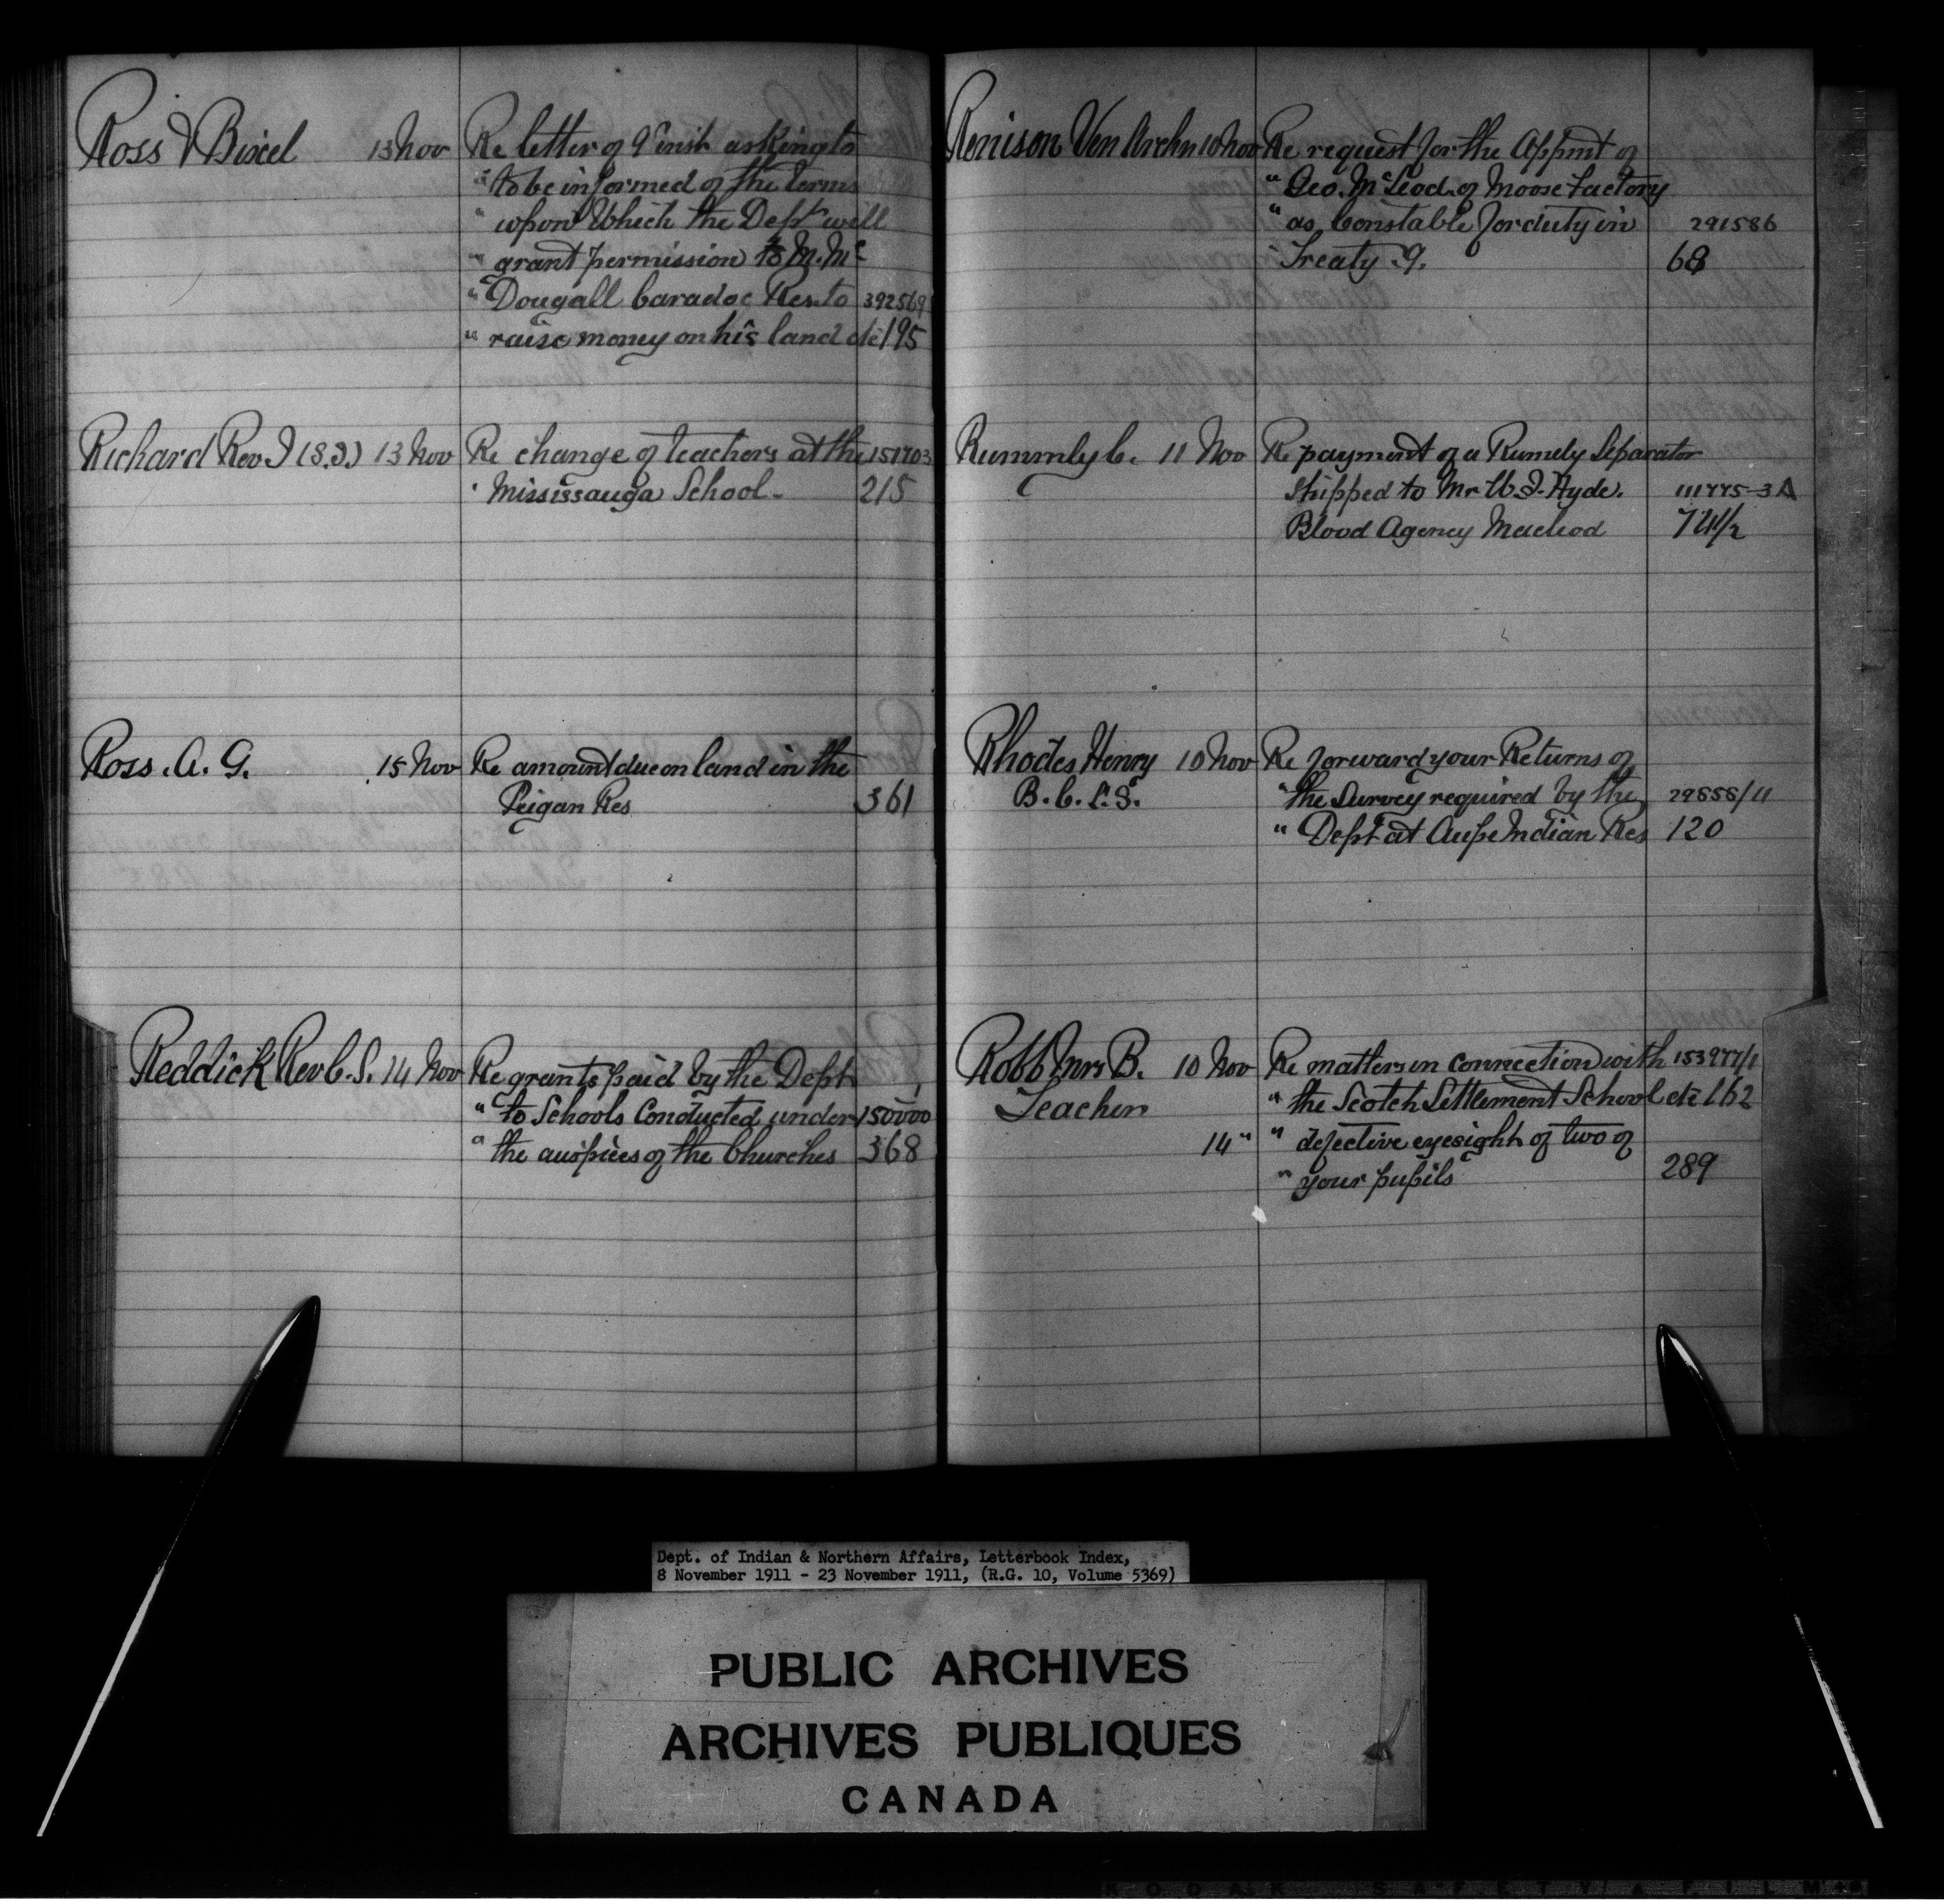 Ross & Bixel 13 Nov Re letter of 9th inst asking to
" to be informed of the terms
" upon Which the Dept will
" grant permission to M. Mc
" Dougall Caradoc Res. to 392569
" raise money on his land etc 195
Richard Rev J (S.J.) 13 Nov Re change of teachers at the 151703
" Mississauga School. 215
Ross. A. G. 15 Nov Re amount due on land in the
Peigan Res 361
Reddick Rev C. S. 14 Nov Re grants paid by the Dept
" to Schools Conducted under 150000
" the auspices of the Churches 368
Renison Ven Archn 10 Nov Re request for the Appmt of
" Geo. McLeod of Moose Factory
" as Constable for duty in 291586
" Treaty 9. 68
Rummly C. 11 Nov Re payment of a Rumely Separator
Shipped to Mr W. J. Hyde. 111775-3A
Blood Agency Macleod 74 1/2
Rhodes Henry 10 Nov Re forward your Returns of
B. C. L. S. " the Survey required by the 29858/11
" Dept at Aupe Indian Res 120
Robb Mrs B. 10 Nov Re matters in connection with 153977/1
Teacher " the Scotch Settlement School etc 162
14 " " defective eyesight of two of
" your pupils 289
Dept. of Indian & Northern Affairs, Letterbook Index,
8 November 1911 - 23 November 1911, (R.G. 10, Volume 5369)
PUBLIC ARCHIVES
ARCHIVES PUBLIQUES
CANADA